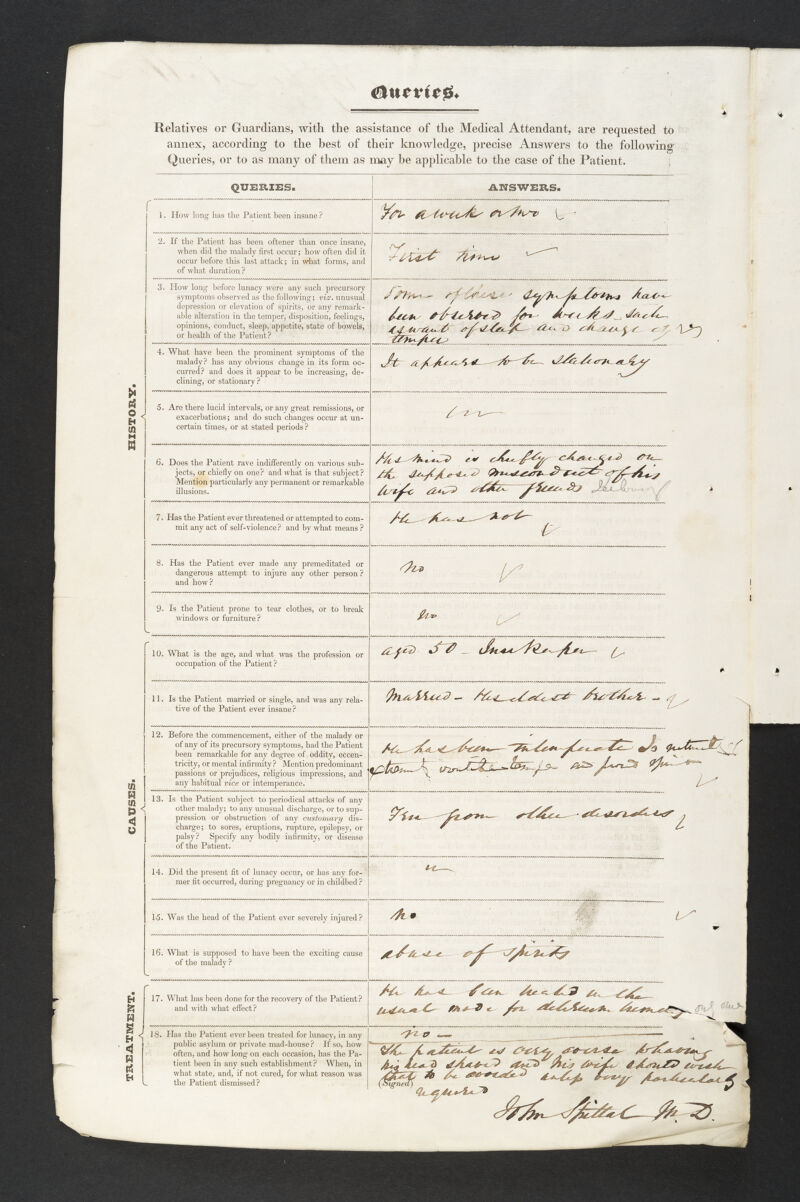 Queries.
Relatives or Guardians, with the assistance of the Medical Attendant, are requested to
annex, according to the best of their knowledge, precise Answers to the following
Queries, or to as many of them as may be applicable to the case of the Patient.
QUERIES.
ANSWERS.
HISTORY.
1. How long has the Patient been insane?
For a week or two
2. If the Patient has been oftener than once insane,
when did the malady first occur; how often did it
occur before this last attack; in what forms, and
of what duration?
First time
3. How long before lunacy were any such precursory
symptoms observed as the following; viz. unusual
depression or elevation of spirits, or any remark-
able alteration in the temper, disposition, feelings,
opinions, conduct, sleep, appetite, state of bowels,
or health of the Patient?
Some of these symptoms have
been observed for weeks such
as want of sleep and change of
temper
4. What have been the prominent symptoms of the
malady? has any obvious change in its form oc-
curred? and does it appear to be increasing, de-
clining, or stationary?
It appears to be stationary
5. Are there lucid intervals, or any great remissions, or
exacerbations; and do such changes occur at un-
certain times, or at stated periods?
6. Does the Patient rave indifferently on various sub-
jects, or chiefly on one? and what is that subject?
Mention particularly any permanent or remarkable
illusions.
His mind is chiefly changed on
the supposed misconduct of his
wife and other friends
7. Has the Patient ever threatened or attempted to com-
mit any act of self-violence? and by what means?
He has not
8. Has the Patient ever made any premeditated or
dangerous attempt to injure any other person?
and how?
No
9. Is the Patient prone to tear clothes, or to break
windows or furniture?
No
CAUSES.
10. What is the age, and what was the profession or
occupation of the Patient?
aged 50 - Innkeeper
11. Is the Patient married or single, and was any rela-
tive of the Patient ever insane?
Married - His eldest brother -
12. Before the commencement, either of the malady or
of any of its precursory symptoms, had the Patient
been remarkable for any degree of oddity, eccen-
tricity, or mental infirmity? Mention predominant
passions or prejudices, religious impressions, and
any habitual vice or intemperance.
He has been intemperate Is
extremely temper and
13. Is the Patient subject to periodical attacks of any
other malady; to any unusual discharge, or to sup-
pression or obstruction of any customary dis-
charge; to sores, eruptions, rupture, epilepsy, or
palsy? Specify any bodily infirmity, or disease
of the Patient.
Free from other disorders
14. Did the present fit of lunacy occur, or has any for-
mer fit occurred, during pregnancy or in childbed?
15. Was the head of the Patient ever severely injured?
No
16. What is supposed to have been the exciting cause
of the malady?
abuse of spirits
TREATMENT.
17. What has been done for the recovery of the Patient?
and with what effect?
He has been treated in the
usual mode for delirium tremens
18. Has the Patient ever been treated for lunacy, in any
public asylum or private mad-house? If so, how
often, and how long on each occasion, has the Pa-
tient been in any such establishment? When, in
what state, and, if not cured, for what reason was
the Patient dismissed?
no —
The patient is very averse to having
his head shaved and his wife should wish
that to be avoided unless very particularly
(Signed)
required
John Spittal M.D.